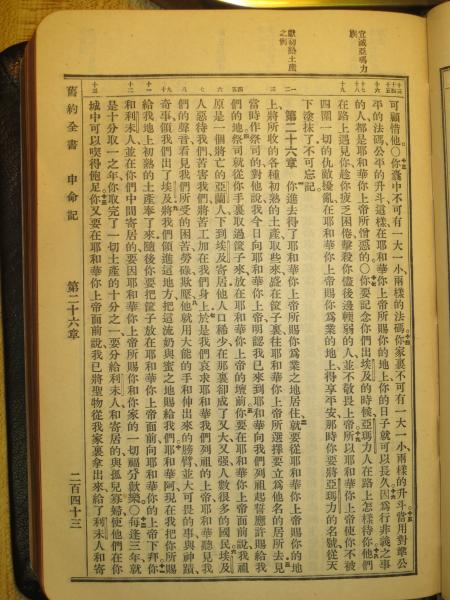 宜滅亞瑪力族
獻初熟土產之例
可顧惜他。○你囊中不可有一大一小兩樣的法碼、你家裏不可有一大一小兩樣的升斗、當用對準公
平的法碼公平的升斗、這樣在耶和華你上帝所賜你的地上你的日子就可以長久、因爲行非義之事
的人都是耶和華你上帝所憎惡的○你要記念你們出埃及的時候、亞瑪力人在路上怎樣待你們他們
在路上遇見你趁你疲乏困倦擊殺你儘後邊輭弱的人、並不敬畏上帝所以耶和華你上帝使你不被
四圍一切的仇敵擾亂在耶和華你上帝賜你爲業的地上得享平安、那時你要將亞瑪力的名號從天
下塗抹了、不可忘記。
第二十六章 你進去得了耶和華你上帝所賜你爲業之地居住、就要從耶和華你上帝賜你的地
上將所收的各種初熟的土產取些來盛在筐子裏往耶和華你上帝所選擇要立爲他名的居所去見
當時作祭司的對他說我今日向耶和華你上帝明認我已來到耶和華向我們列祖起誓應許賜給我
們的地祭司就從你手裏取過筐子來放在耶和華你上帝的壇前你要在耶和華你上帝面前說我祖
原是一個將亡的亞蘭人下到埃及寄居他人口稀少在那裏卻成了又大又強人數很多的國民埃及
人惡待我們苦害我們將苦工加在我們身上於是我們哀求耶和華我們列祖的上帝耶和華聽見我
們的聲音看見我們所受的困苦勞碌欺壓他就用大能的手和伸出來的膀臂並大可畏的事與神蹟
奇事領我們出了埃及將我們領進這地方把這流奶與蜜之地賜給我們耶和華阿、現在我把你所賜
給我地上初熟的土產奉了來隨後你要把筐子放在耶和華你上帝面前向耶和華你的上帝下拜你
和利未人並在你們中間寄居的要因耶和華你上帝所賜你和你家的一切福分歡樂○每逢三年就
是十分取一之年你取完了一切土產的十分之一要分給利未人和寄居的與孤兒寡婦使他們在你
城中可以喫得飽足你又要在耶和華你上帝面前說我已將聖物從我家裏拿出來給了利未人和寄
舊約全書 申命記 第二十六章 二百四十三